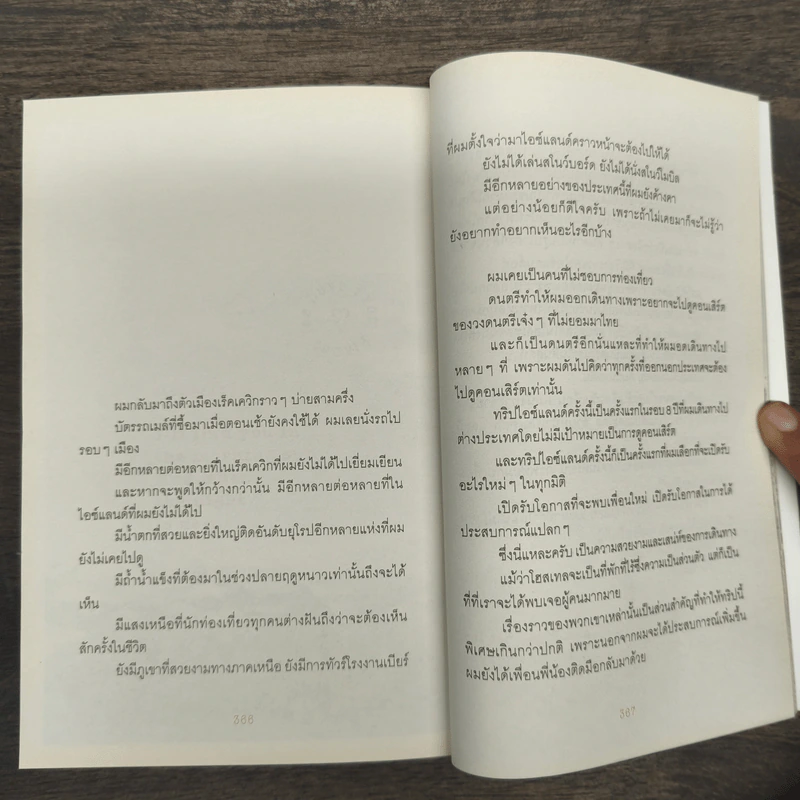 ผมกลับมาถึงตัวเมืองเร็คเควิกราวๆ บ่ายสามครึ่ง
บัตรรถเมล์ที่ซื้อมาเมื่อตอนเช้ายังคงใช้ได้ ผมเลยนั่งรถไป
รอบๆ เมือง
มีอีกหลายต่อหลายที่ในเร็คเควิกที่ผมยังไม่ได้ไปเยี่ยมเยียน
และหากจะพูดให้กว้างกว่านั้น มีอีกหลายต่อหลายที่ใน
ไอซ์แลนด์ที่ผมยังไม่ได้ไป
มีน้ำตกที่สวยและยิ่งใหญ่ติดอันดับยุโรปอีกหลายแห่งที่ผม
ยังไม่เคยไปดู
มีถ้ำน้ำแข็งที่ต้องมาในช่วงปลายฤดูหนาวเท่านั้นถึงจะได้
เห็น
มีแสงเหนือที่นักท่องเที่ยวทุกคนต่างฝันถึงว่าจะต้องเห็น
สักครั้งในชีวิต
ยังมีภูเขาที่สวยงามทางภาคเหนือ ยังมีการทัวร์โรงงานเบียร์
366
ที่ผมตั้งใจว่ามาไอซ์แลนด์คราวหน้าจะต้องไปให้ได้
ยังไม่ได้เล่นสโนว์บอร์ด ยังไม่ได้นั่งสโนว์โมบีล
มีอีกหลายอย่างของประเทศนี้ที่ผมยังค้างคา
แต่อย่างน้อยก็ดีใจครับ เพราะถ้าไม่เคยมาก็จะไม่รู้ว่า
ยังอยากทำอยากเห็นอะไรอีกบ้าง
ผมเคยเป็นคนที่ไม่ชอบการท่องเที่ยว
ดนตรีทำให้ผมออกเดินทางเพราะอยากจะไปดูคอนเสิร์ต
ของวงดนตรีเจ๋งๆ ที่ไม่ยอมมาไทย
และก็เป็นดนตรีอีกนั่นแหละที่ทำให้ผมอดเดินทางไป
หลายๆ ที่ เพราะผมดันไปคิดว่าทุกครั้งที่ออกนอกประเทศจะต้อง
ไปดูคอนเสิร์ตเท่านั้น
ทริปไอซ์แลนด์ครั้งนี้เป็นครั้งแรกในรอบ 8 ปีที่ผมเดินทางไป
ต่างประเทศโดยไม่มีเป้าหมายเป็นการดูคอนเสิร์ต
และทริปไอซ์แลนด์ครั้งนี้ก็เป็นครั้งแรกที่ผมเลือกที่จะเปิดรับ
อะไรใหม่ๆ ในทุกมิติ
เปิดรับโอกาสที่จะพบเพื่อนใหม่ เปิดรับโอกาสในการได้
ประสบการณ์แปลกๆ
ซึ่งนี่แหละครับ เป็นความสวยงามและเสน่ห์ของการเดินทาง
แม้ว่าโฮสเทลจะเป็นที่พักที่ไร้ซึ่งความเป็นส่วนตัว แต่ก็เป็น
ที่ที่เราจะได้พบเจอผู้คนมากมาย
เรื่องราวของพวกเขาเหล่านั้นเป็นส่วนสำคัญที่ทำให้ทริปนี้
พิเศษเกินกว่าปกติ เพราะนอกจากผมจะได้ประสบการณ์เพิ่มขึ้น
ผมยังได้เพื่อนพี่น้องติดมือกลับมาด้วย
367